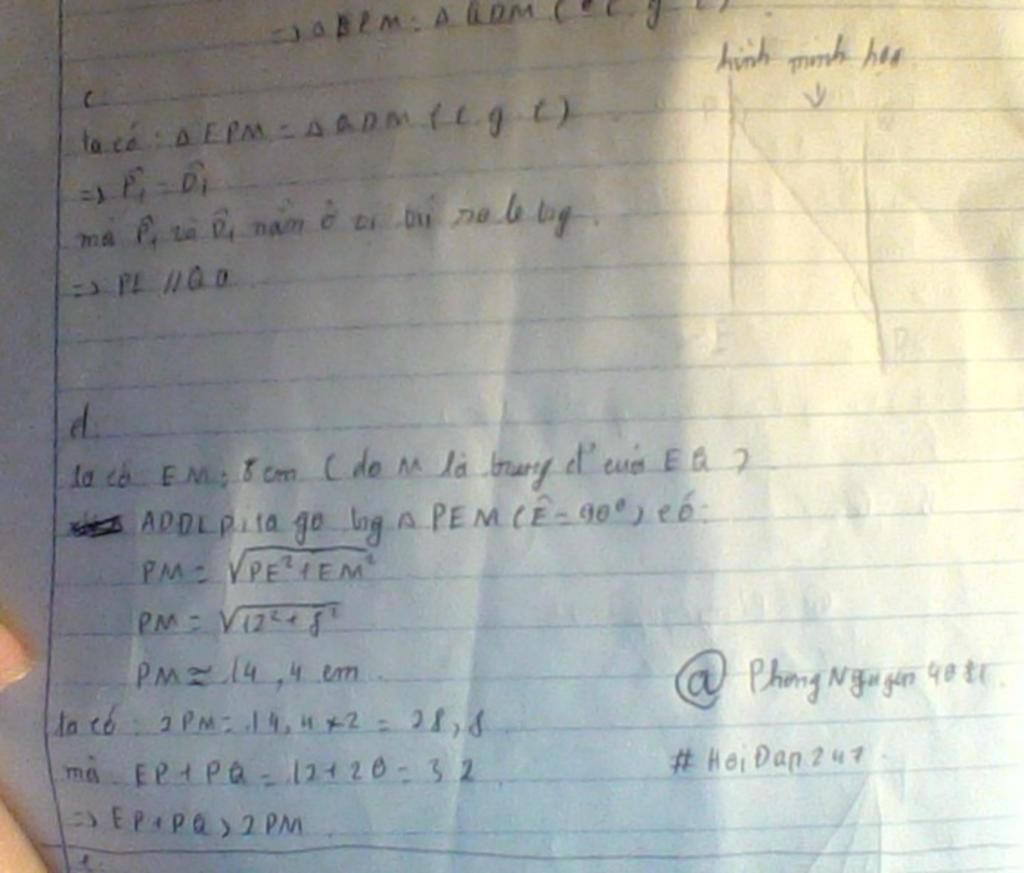 => Δ EPM = Δ QDM (c g c)
hình minh họa
c.
Ta có : Δ EPM = Δ QDM (c g c)
=> P̂₁ = D̂₁
mà P̂₁ và D̂₁ nằm ở vị trí so le tg
=> PE // QD
P
E
d.
Ta có EM = 8cm (do M là trung đ' của EQ)
ADĐL pi ta go tg Δ PEM (Ê = 90°) có:
PM = √PE² + EM²
PM = √12² + 8²
PM ≃ 14,4 cm
Ta có : 2PM = 14,4 × 2 = 28,8
mà EP + PQ = 12 + 20 = 32
=> EP + PQ > 2PM
@ PhongNguyen4081
# HoiDap247